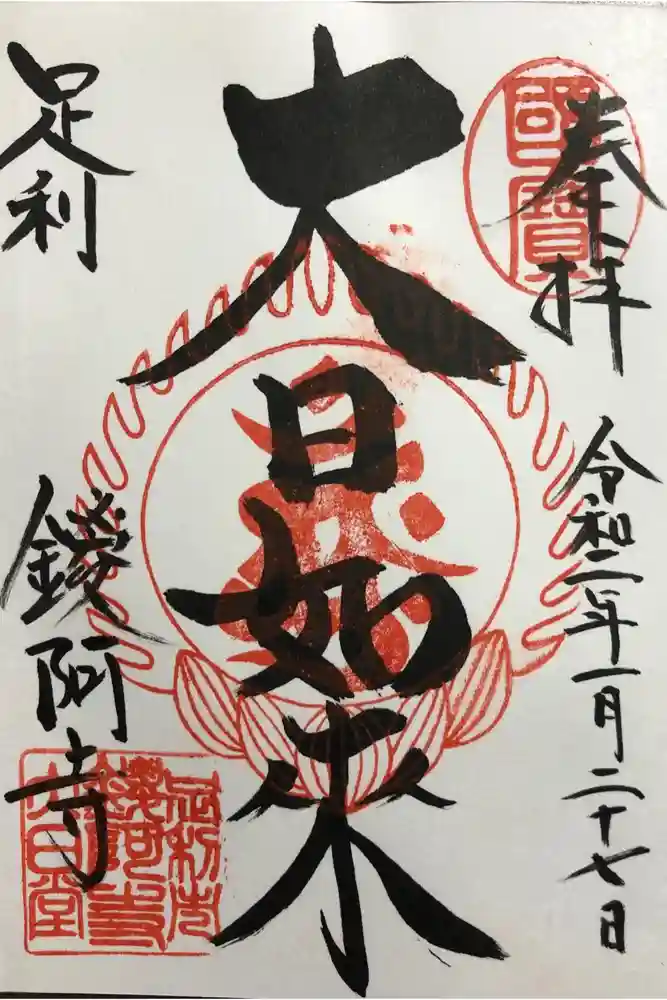 奉拝
令和二年一月二十七日
國寳
大日如来
足利
鑁阿寺
足利市
鑁阿寺
大日堂